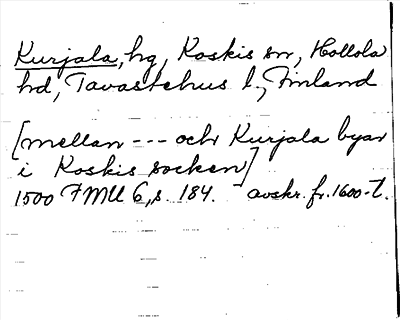 Kurjala, hg, Koskis sn, Hollola
hd, Tavastehus l., Finland
[mellan --- och Kurjala byar
i Koskis socken]
1500 FMU 6, s. 184. avskr. fr. 1600-t.